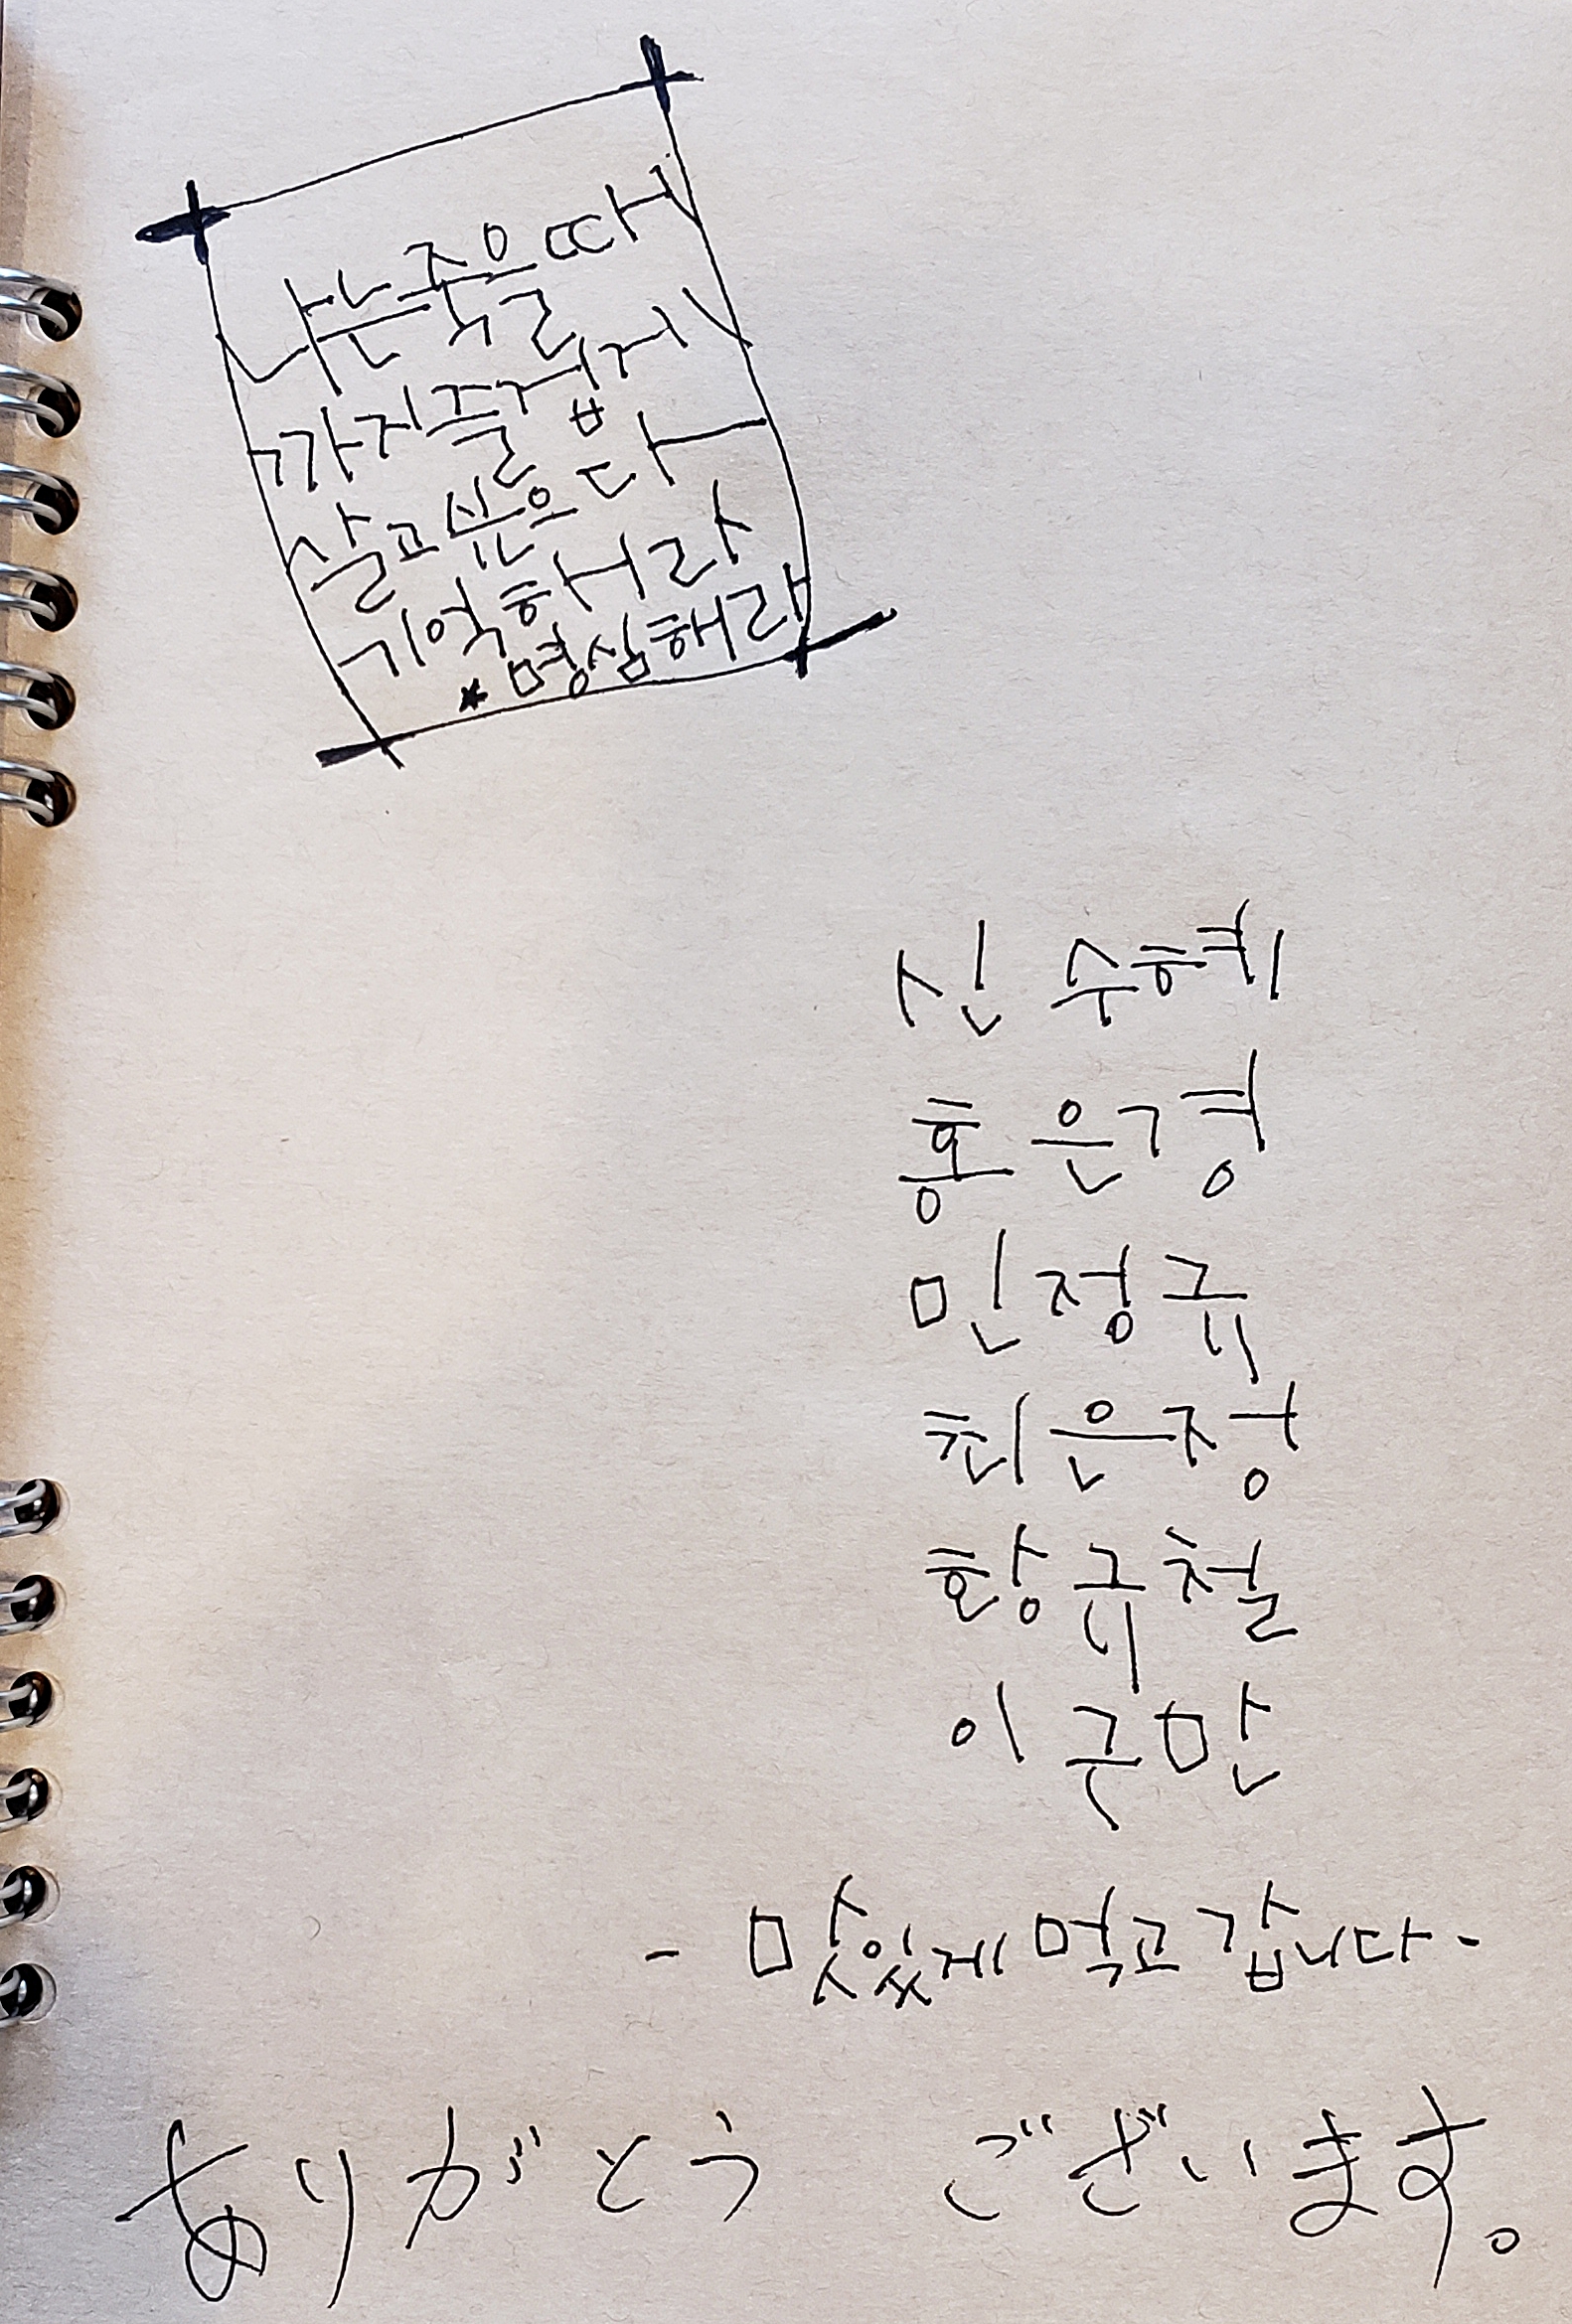 나는 죽을 때
까지 즐겁게
살고 싶은 다
기억해라
* 명심해라
신 수혜
홍은경
민정규
최은정
황규철
이규만
- 맛있게 먹고 갑니다 -
ありがとう ございます。